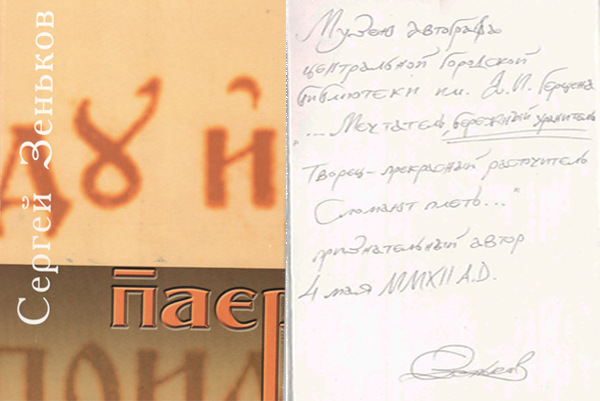 Сергей Зеньков
паер
Музею автографа
центральной Городской
библиотеки им. А.И. Герцена
"... Мечтатель, бережный хранитель
Творец – прекрасный расточитель
Сломают плеть..."
признательный автор
4 мая MMXII A.D.